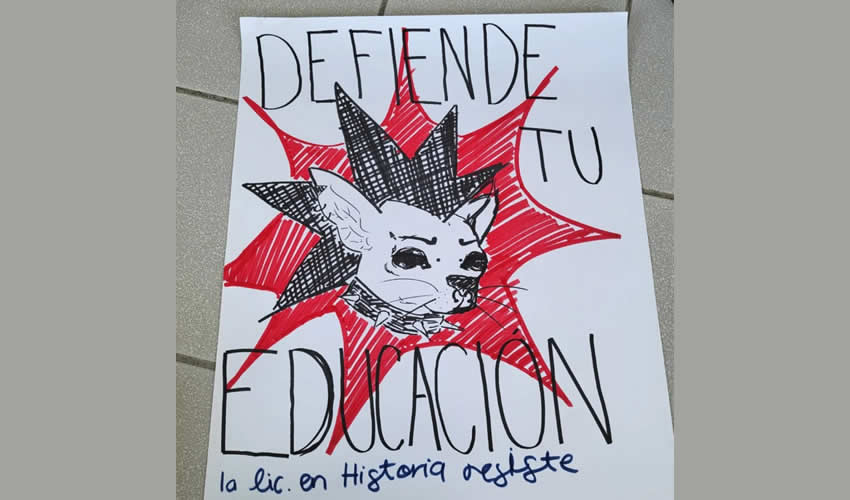 DEFIENDE
TU
EDUCACIÓN
la lic. en Historia resiste